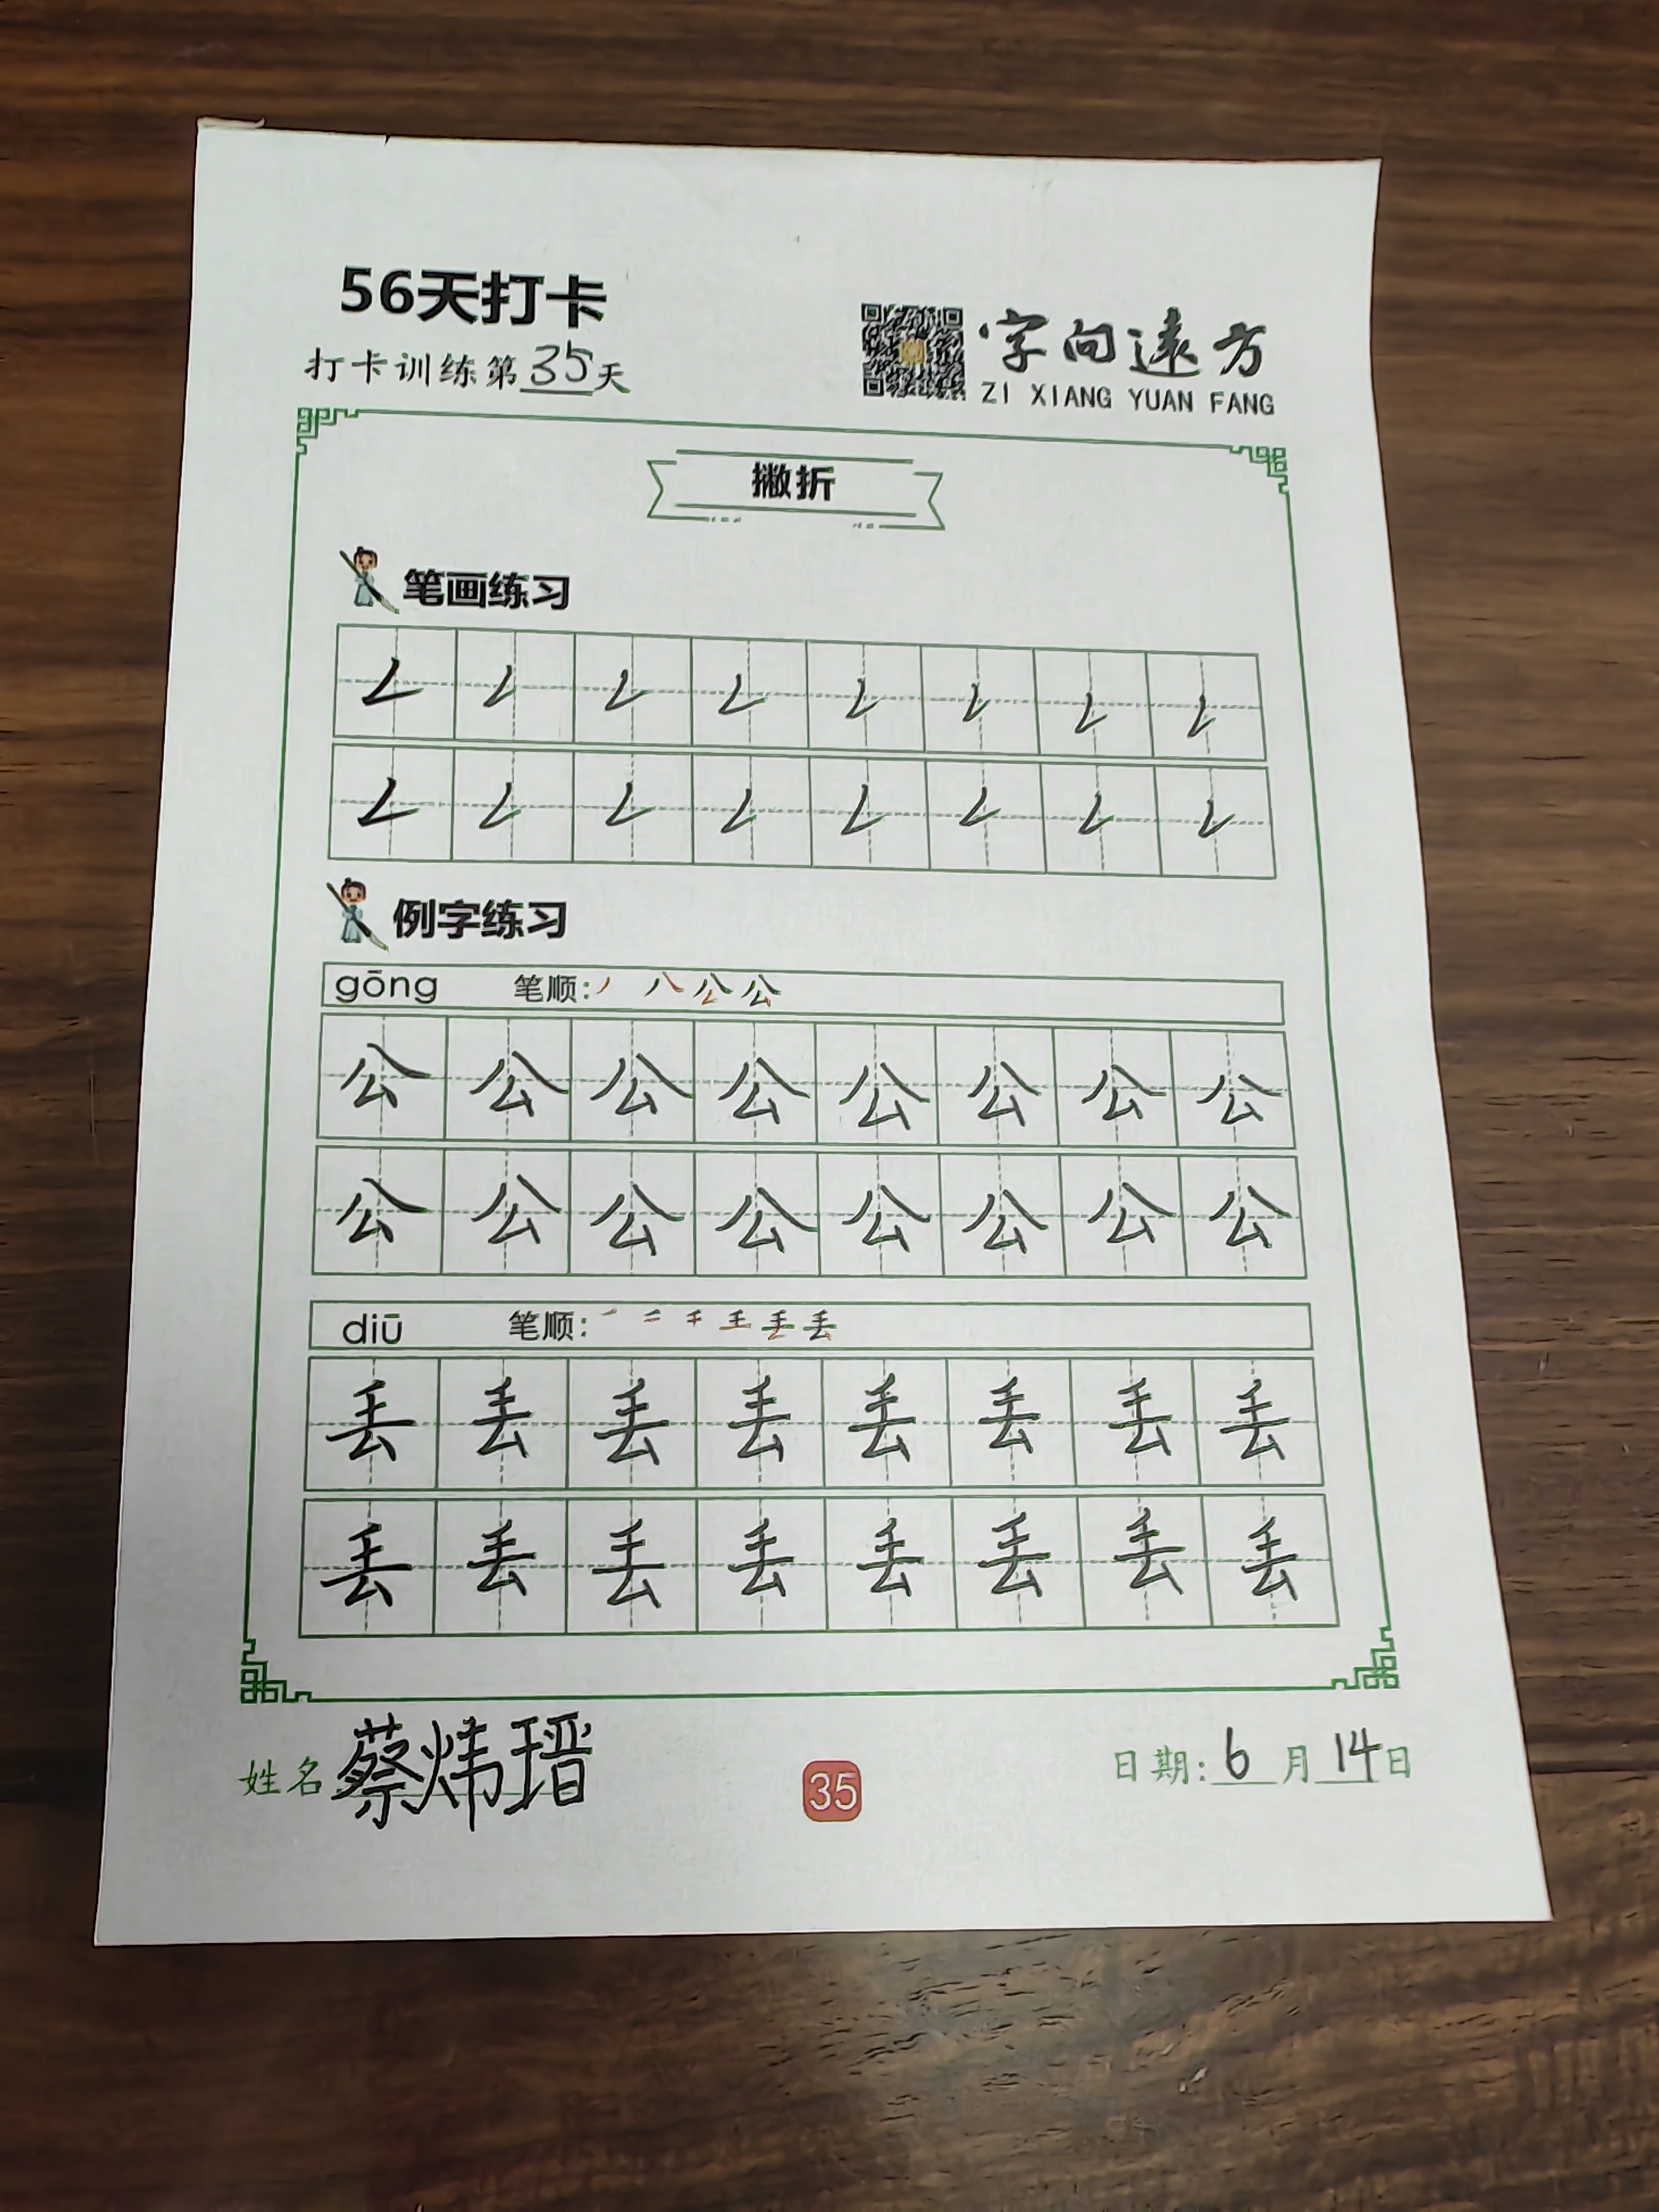 56天打卡
打卡训练第35天
字向遠方
ZI XIANG YUAN FANG
撇折
笔画练习
𠃋 𠃋 𠃋 𠃋 𠃋 𠃋 𠃋 𠃋
𠃋 𠃋 𠃋 𠃋 𠃋 𠃋 𠃋 𠃋
例字练习
gōng 笔顺: 丿 八 公 公
公 公 公 公 公 公 公 公
公 公 公 公 公 公 公 公
diū 笔顺: ㇒ 二 千 王 丢 丢
丢 丢 丢 丢 丢 丢 丢 丢
丢 丢 丢 丢 丢 丢 丢 丢
姓名 蔡炜瑨
35
日期: 6 月 14 日